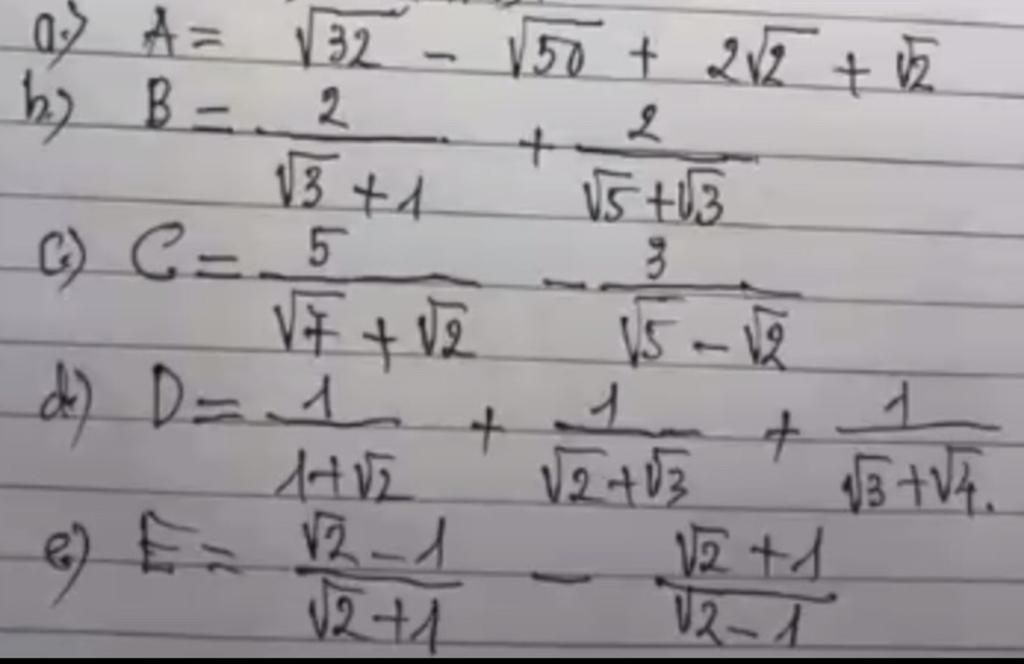 a.) A = √32 - √50 + 2√2 + √2
b.) B = 2/(√3 + 1) + 2/(√5+√3)
c.) C = 5/(√7 + √2) - 3/(√5 - √2)
d.) D = 1/(1+√2) + 1/(√2+√3) + 1/(√3+√4).
e.) E = (√2 - 1)/(√2 + 1) - (√2 + 1)/(√2 - 1)